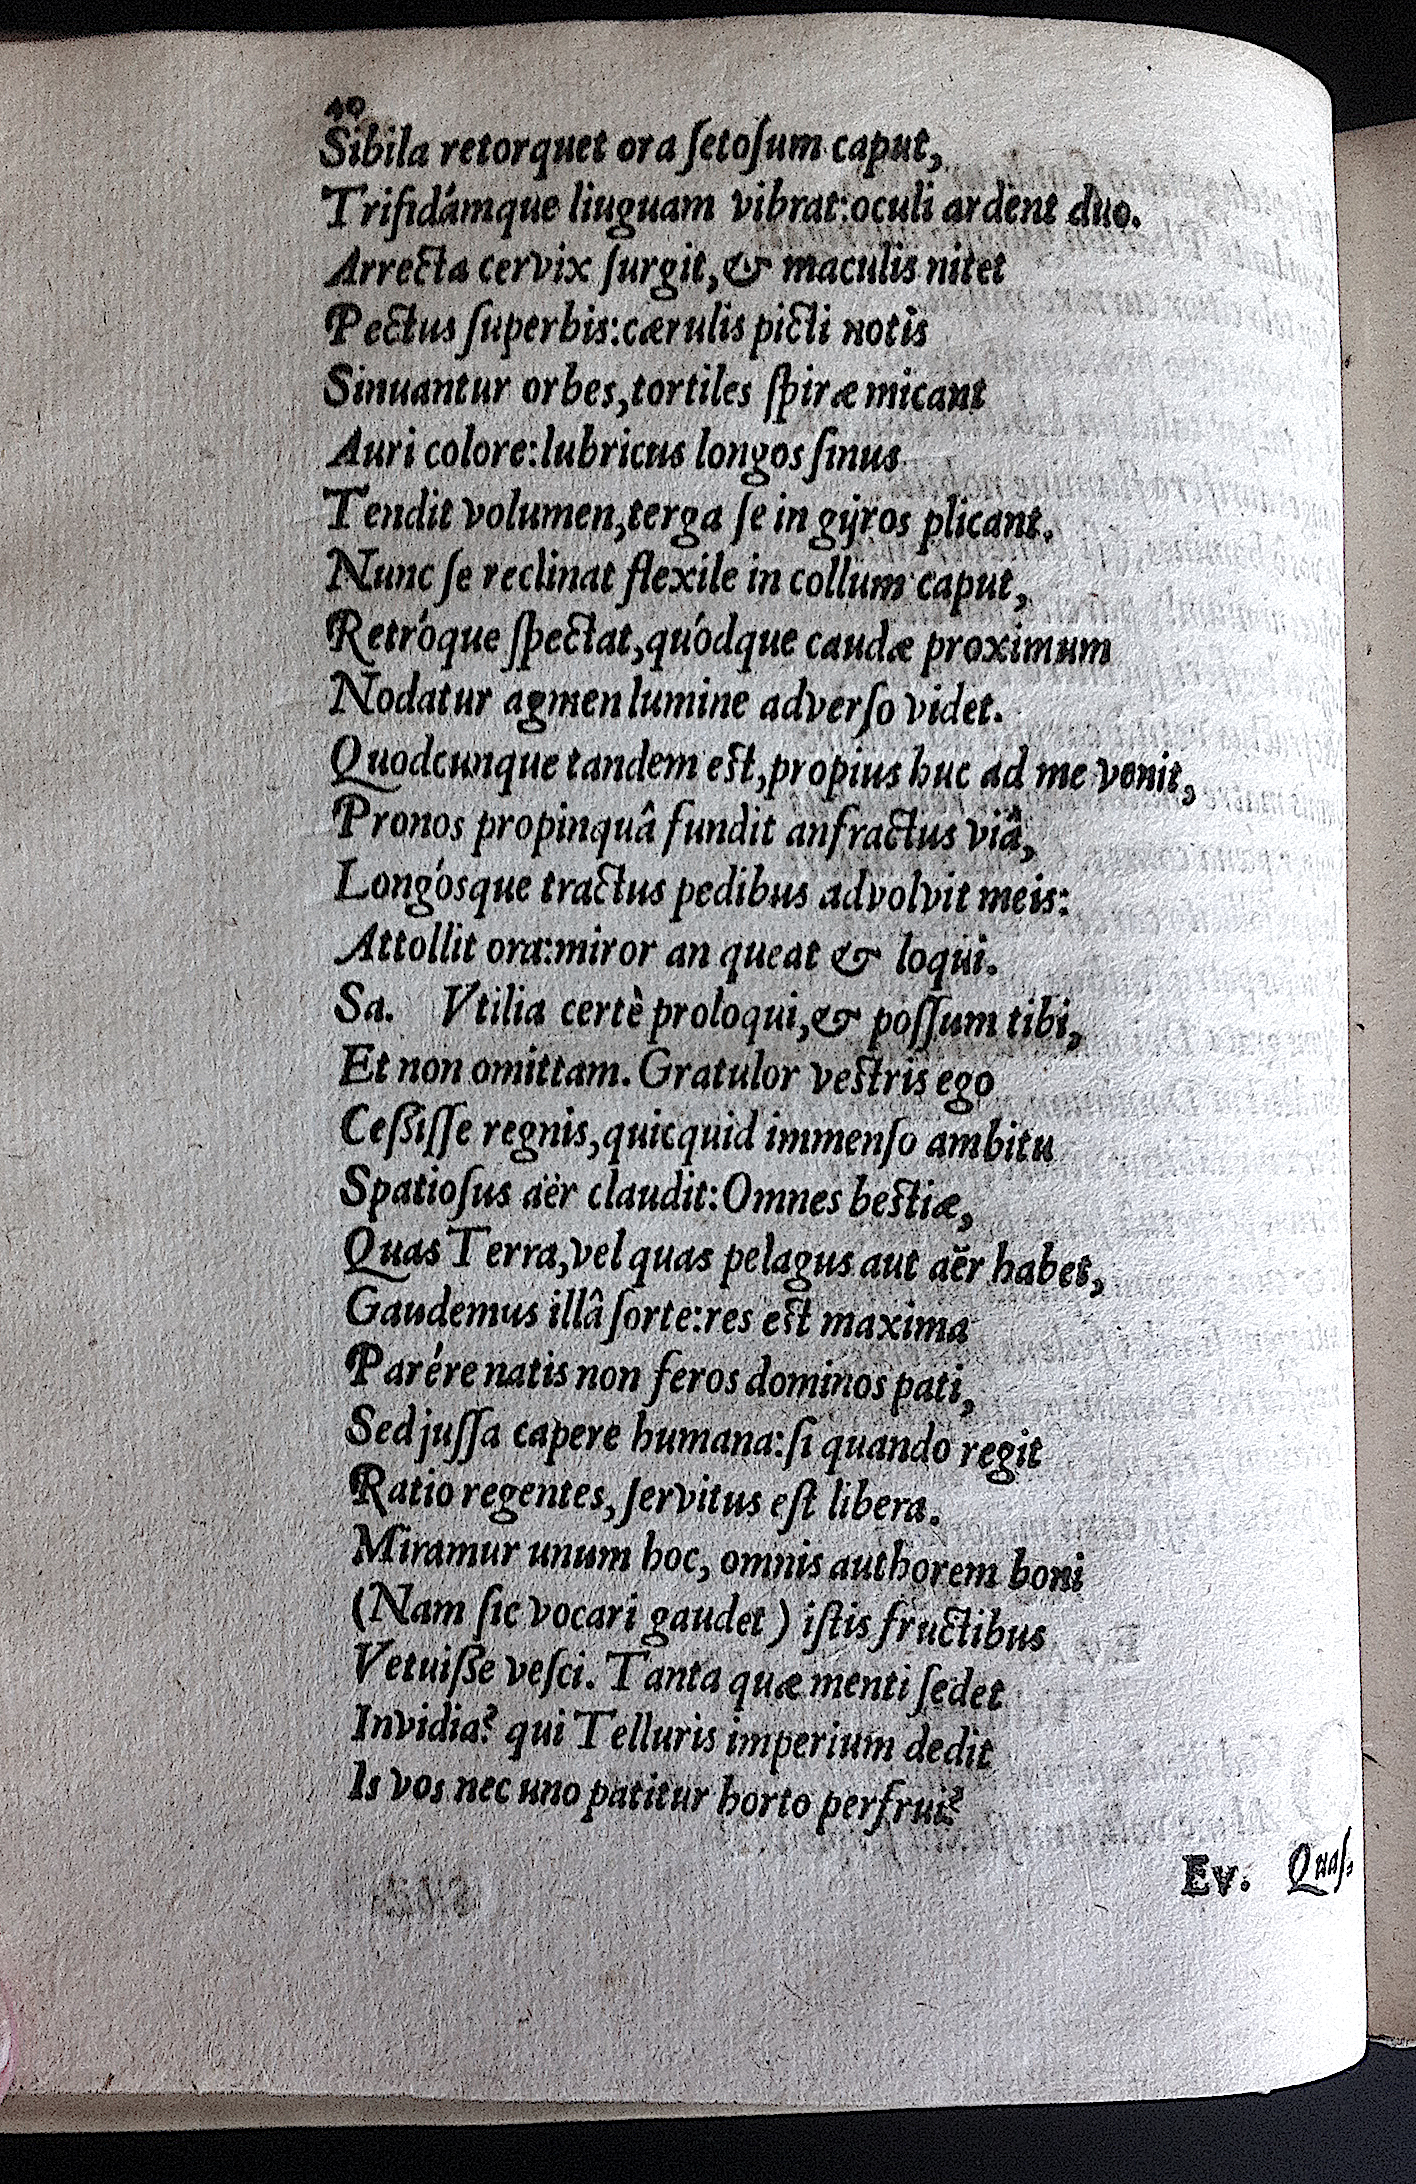 40
Sibila retorquet ora ſetoſum caput,
Trifidámque liuguam vibrat:oculi ardent duo.
Arrecta cervix ſurgit,& maculis nitet
Pectus ſuperbis:cærulis picti notis
Sinuantur orbes,tortiles ſpiræ micant
Auri colore:lubricus longos ſinus
Tendit volumen,terga ſe in gÿros plicant.
Nunc ſe reclinat flexile in collum caput,
Retróque ſpectat,quódque caudæ proximum
Nodatur agmen lumine adverſo videt.
Quodcunque tandem eſt,propius huc ad me venit,
Pronos propinquâ fundit anfractus viâ,
Longósque tractus pedibus advolvit meis:
Attollit ora:miror an queat & loqui.
Sa. Vtilia certè proloqui,& poſſum tibi,
Et non omittam. Gratulor veſtris ego
Ceſsiſſe regnis,quicquid immenſo ambitu
Spatioſus aër claudit:Omnes beſtiæ,
Quas Terra,vel quas pelagus aut aër habet,
Gaudemus illâ ſorte:res eſt maxima
Parére natis non feros dominos pati,
Sed juſſa capere humana:ſi quando regit
Ratio regentes, ſervitus eſt libera.
Miramur unum hoc, omnis authorem boni
(Nam ſic vocari gaudet) iſtis fructibus
Vetuiſse veſci. Tanta quæ menti ſedet
Invidia? qui Telluris imperium dedit
Is vos nec uno patitur horto perfrui?
Ev. Quaſ-